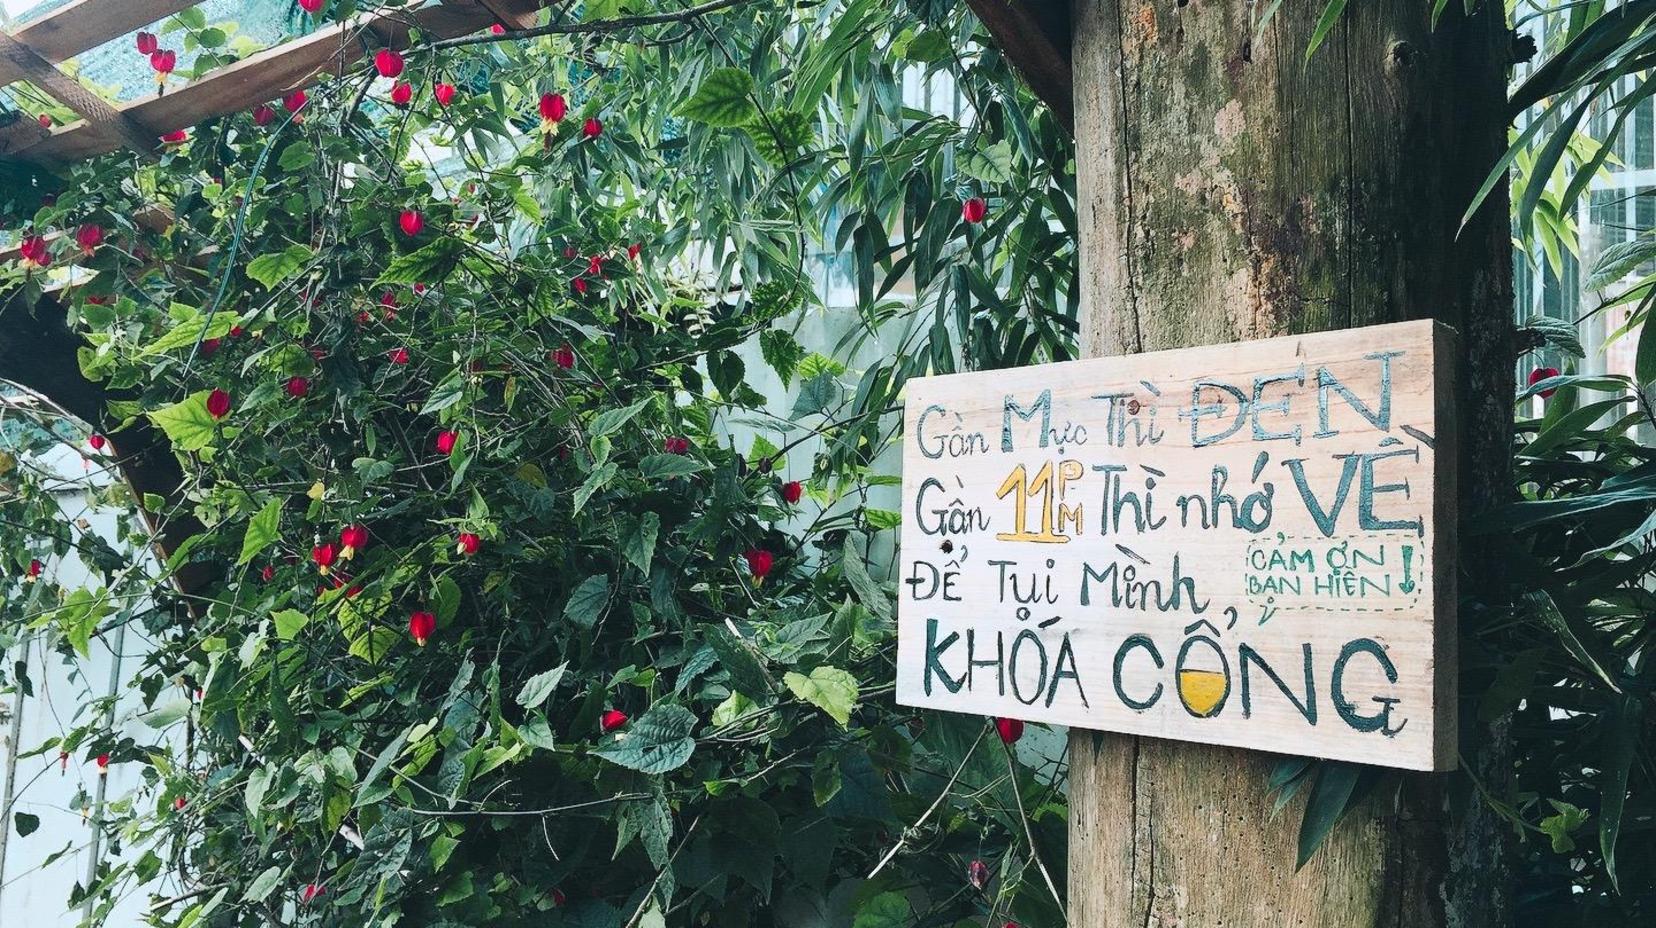 Gần Mực Thì ĐEN
Gần 11PM Thì nhớ VỀ
ĐỂ Tụi Mình
CẢM ƠN
BẠN HIỀN!
KHÓA CỔNG